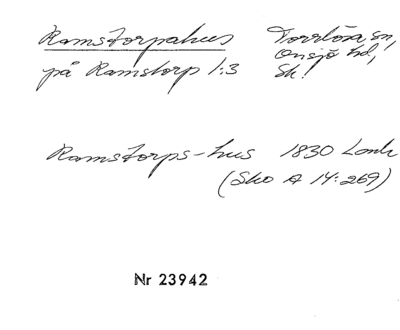 Ramstorpahus Torrlösa sn,
på Ramstorp 1:3 Onsjö hd,
Sk!
Ramstorps-hus 1830 Lantm
(Sko A 14:269)
Nr 23942